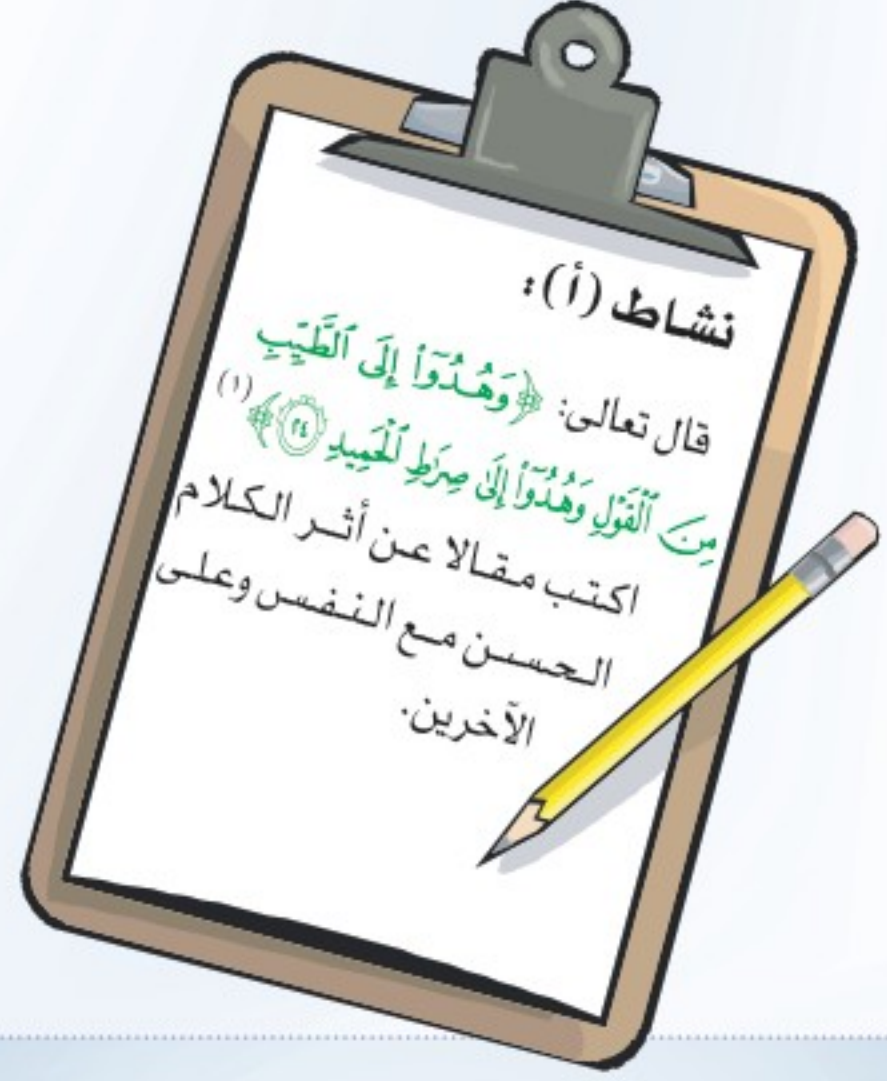 نشاط (أ):
قال تعالى: ﴿وَهُدُوٓاْ إِلَى ٱلطَّيِّبِ
مِنَ ٱلۡقَوۡلِ وَهُدُوٓاْ إِلَىٰ صِرَٰطِ ٱلۡحَمِيدِ ٢٤﴾ (١)
اكتب مقالا عن أثر الكلام
الحسن مع النفس وعلى
الآخرين.